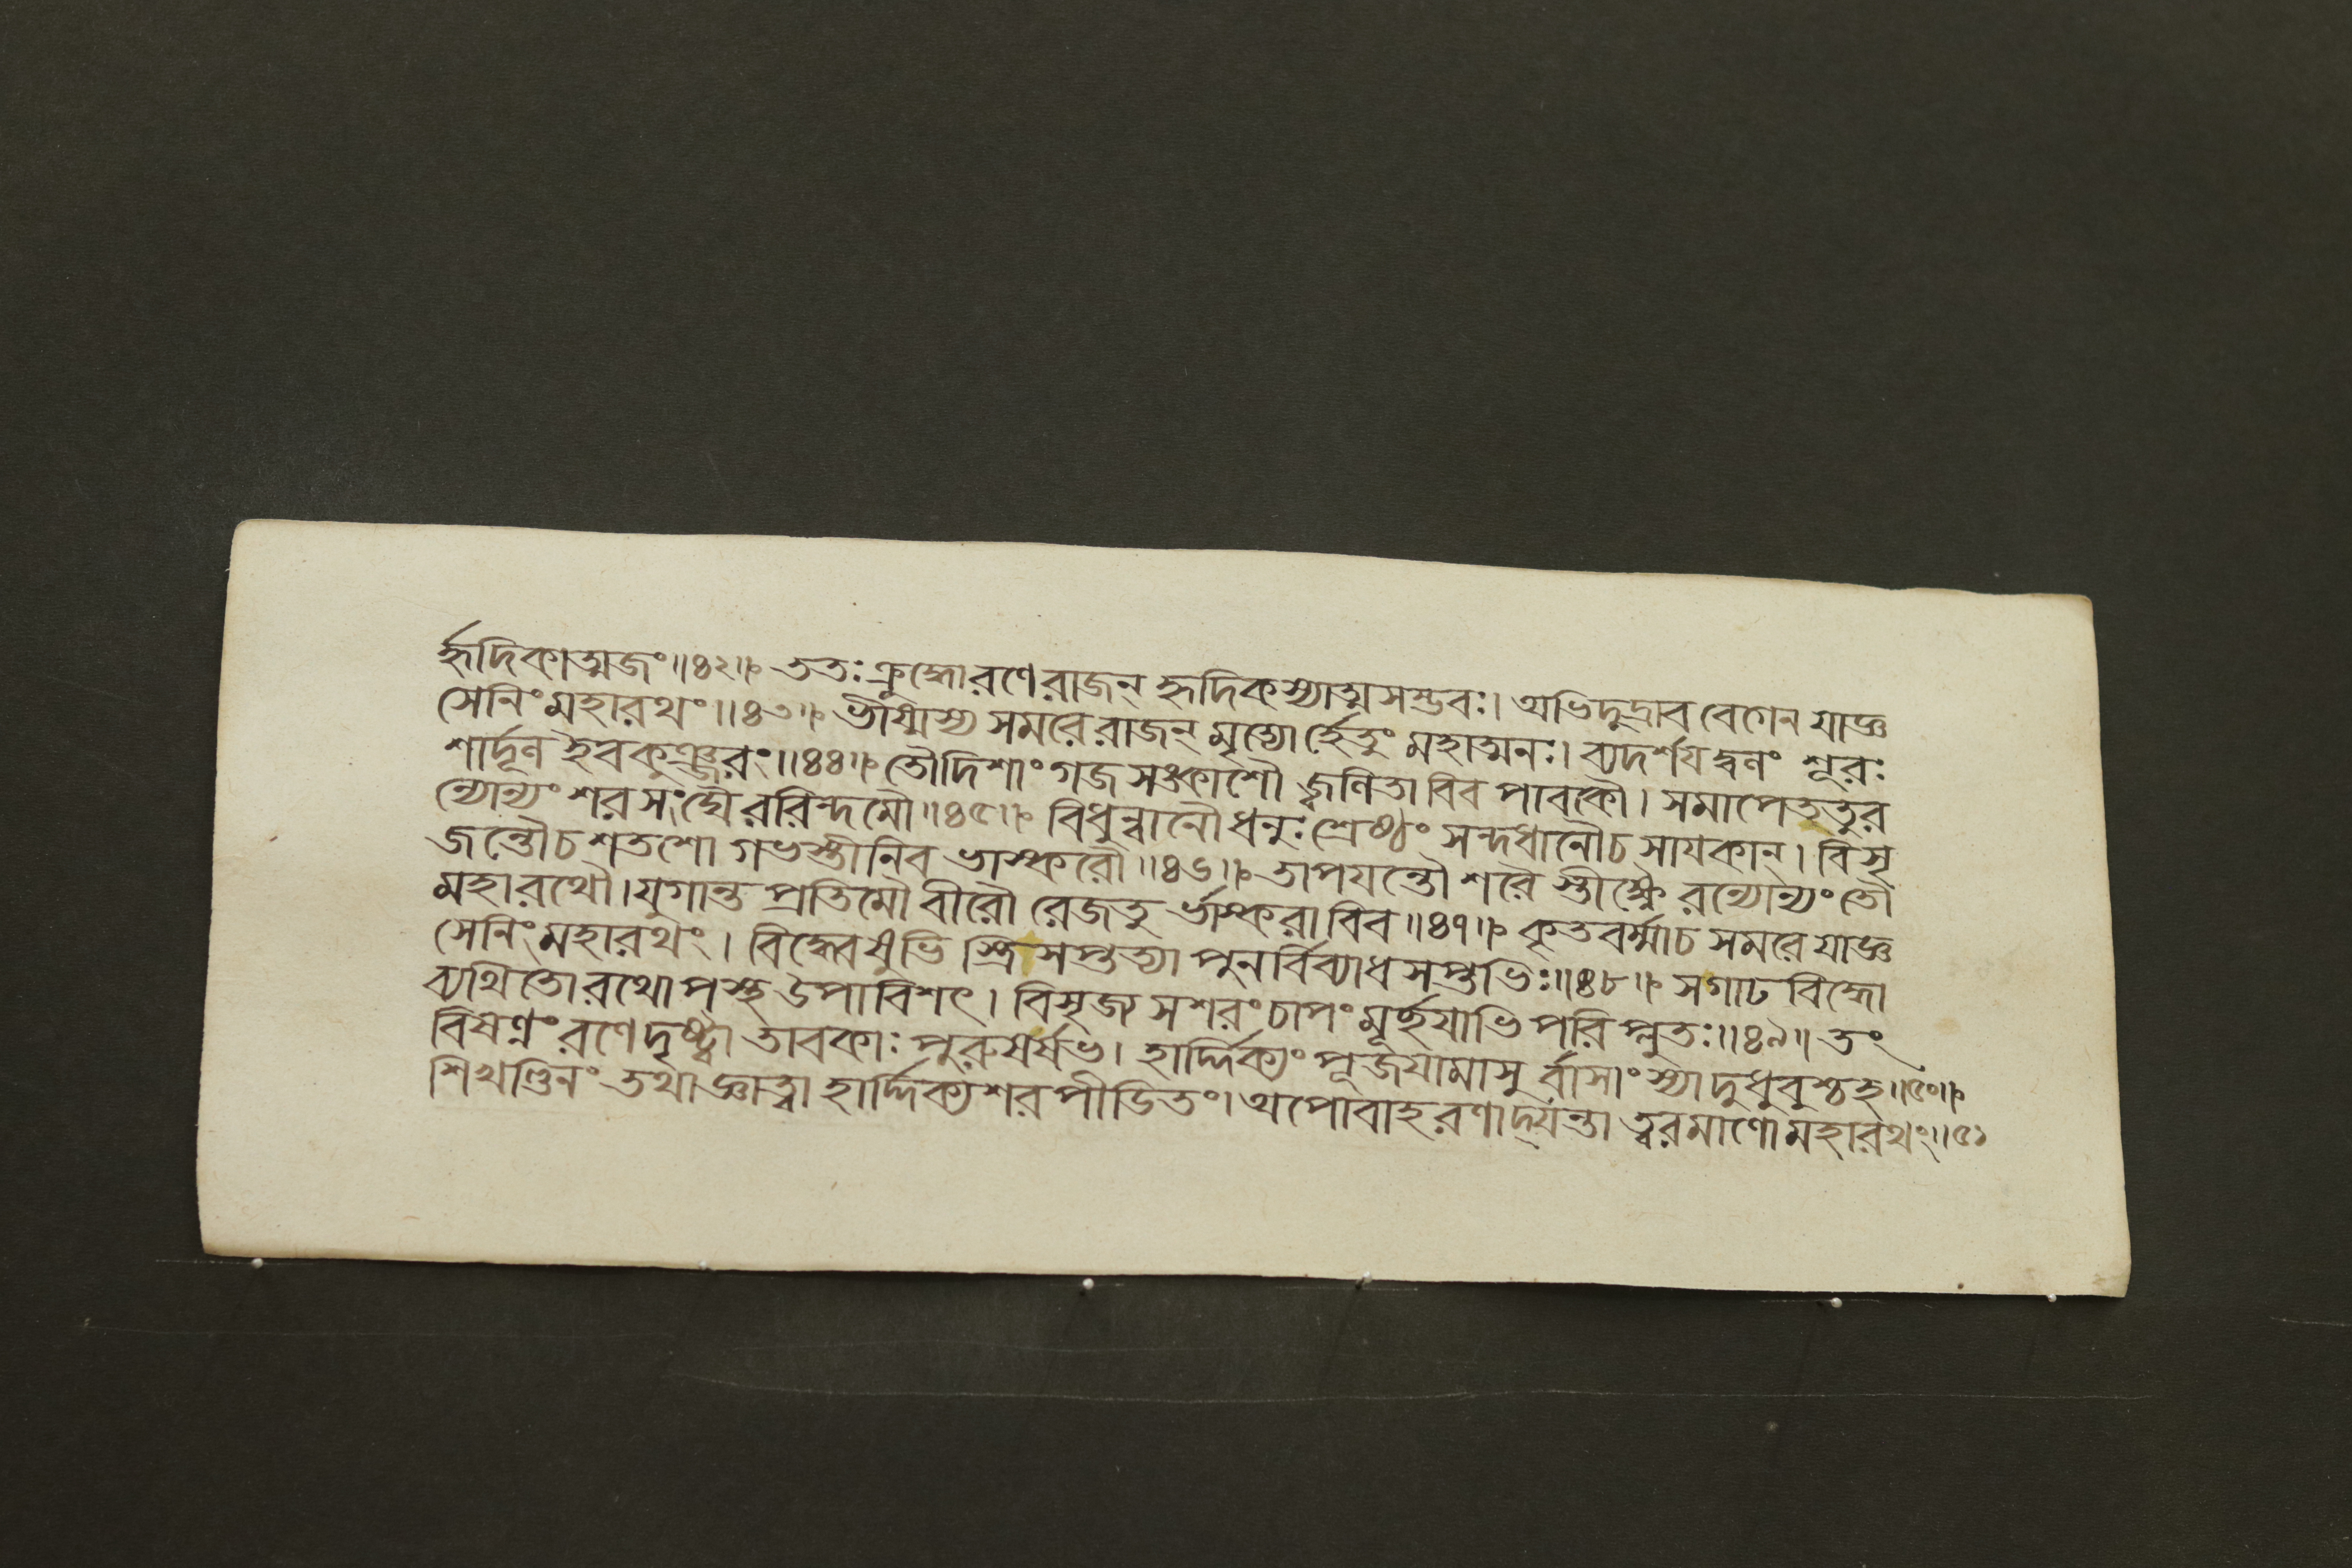 র্হৃদিকাত্মজং॥৪২॥ ততঃ ক্রুদ্ধোরণেরাজন্ হৃদিকস্যাত্মসম্ভবঃ। অভিদুদ্রাব বেগেন যাজ্ঞ
সেনিংমহারথং॥৪৩॥ ভীষ্মস্য সমরেরাজন্ মৃত্যোর্হেতুং মহাত্মনঃ। ব্যদর্শযদ্বলং শূরঃ
শার্দূল ইবকুঞ্জরং॥৪৪॥ তৌদিশাং গজসঙ্কাশৌ জ্বলিতাবিব পাবকৌ। সমাপেততুর
ন্যোন্যং শরসংঘৈররিন্দমৌ॥৪৫॥ বিধুন্বানৌ ধনুঃশ্রেষ্ঠং সন্দধানৌচ সাযকান্। বিসৃ
জন্তৌচ শতশো গভস্তীনিব ভাস্করৌ॥৪৬॥ তাপযন্তৌ শরৈস্তীক্ষ্ণৈরন্যোন্যং তৌ
মহারথৌ। যুগান্ত প্রতিমৌ বীরৌ রেজতুর্ভাস্করাবিব॥৪৭॥ কৃতবর্ম্মাচ সমরে যাজ্ঞ
সেনিং মহারথং। বিদ্ধ্বেষুভিস্ত্রিসপ্তত্যা পুনর্বিব্যাধ সপ্তভিঃ॥৪৮॥ সগাঢ বিদ্ধো
ব্যথিতোরথোপস্থ উপাবিশৎ। বিসৃজ্য সশরং চাপং মূর্চ্ছযাভিপরিপ্লুতঃ॥৪৯॥ তং
বিষণ্নং রণেদৃষ্ট্বা তাবকাঃ পুরুষর্ষভ। হার্দ্দিক্যং পূজযামাসুর্বাসাংস্যাদুধুবুশ্চহ॥৫০॥
শিখণ্ডিনং তথাজ্ঞাত্বা হার্দ্দিক্যশরপীডিতং। অপোবাহরণাদ্যন্তা ত্বরমাণোমহারথং॥৫১